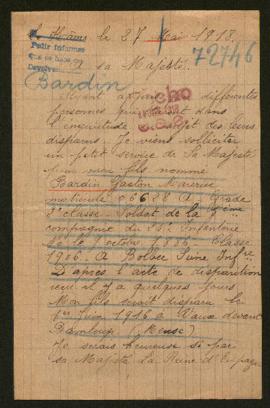 le 27 Mai 1918.
72746
Pedir informes
Devolver
A sa Majesté
Bardin
Ayant appris différentes
personnes qui étaient dans
l'inquiétude au sujet des leurs
disparus. Je viens solliciter
un petit service de Sa Majesté
pour mon fils nommé
Bardin Gaston Maurice
matricule 06638 Grade
2e classe. Soldat de la
compagnie du Infanterie
né le 7 octobre 1886. Classe
1906. A Bolbec Seine Infre
D'après l'acte de disparition
reçu il y a quelques jours
Mon fils serait disparu le
1er Juin 1916 à Vaux devant
Damloup (Meuse)
Je serais heureuse si par
sa Majesté La Reine d'Espagne